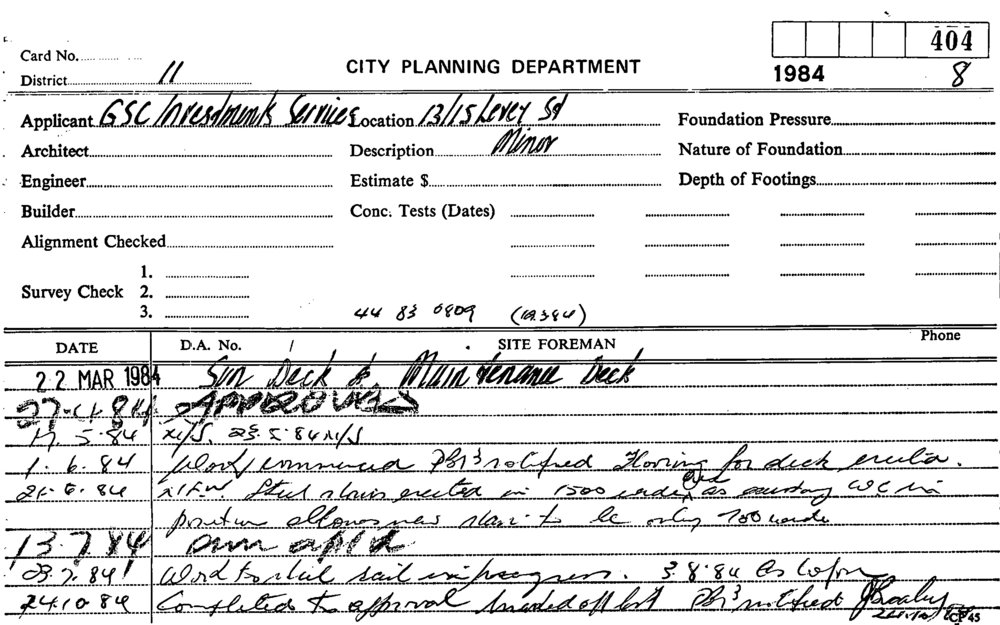 404
Card No.
CITY PLANNING DEPARTMENT
District 11
1984 8
Applicant GSC Investments Services Location 13/15 Levey St Foundation Pressure
Architect Description Minor Nature of Foundation
Engineer Estimate $ Depth of Footings
Builder Conc. Tests (Dates)
Alignment Checked
1.
Survey Check 2.
3. 44 83 0809
DATE D.A. No. / SITE FOREMAN Phone
22 MAR 1984 Sun Deck & Maintenance Deck
84 APPROVED
5.84 N/S. 23.5.84 N/S
1.6.84 Work commenced notified Flooring for deck erected.
6.84 Steel stairs erected in 1500 as existing WC in
position new stair to be only 700 wide
13.7.84
23.7.84 Work to in progress. 3.8.84 As before
24.10.84 Completed to approval notified